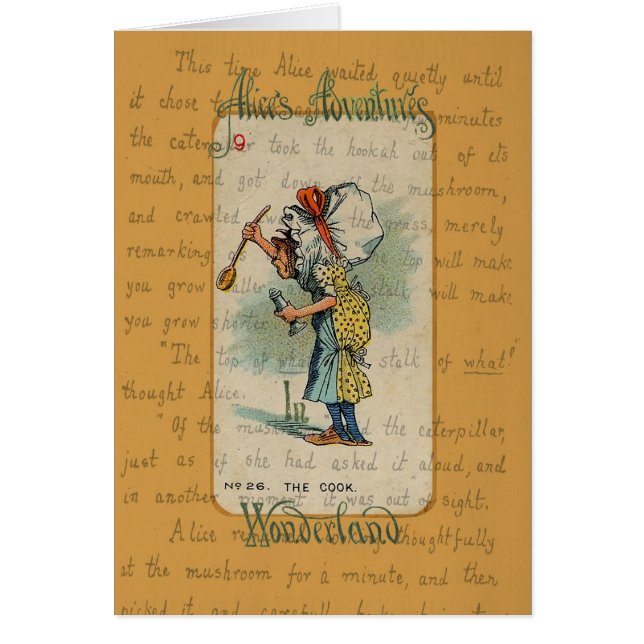 This time Alice waited quietly until
it chose to minutes
Alice's Adventures
9
the caterpillar took the hookah out of its
mouth, and got down off the mushroom,
and crawled away the grass, merely
remarking as "the top will make
you grow taller stalk will make
you grow shorter
"The top of what? stalk of what?"
thought Alice.
In
"Of the mushroom and the caterpillar,
just as if she had asked it aloud, and
No 26. THE COOK.
in another moment it was out of sight.
Wonderland
Alice thoughtfully
at the mushroom for a minute, and then
picked it and carefully